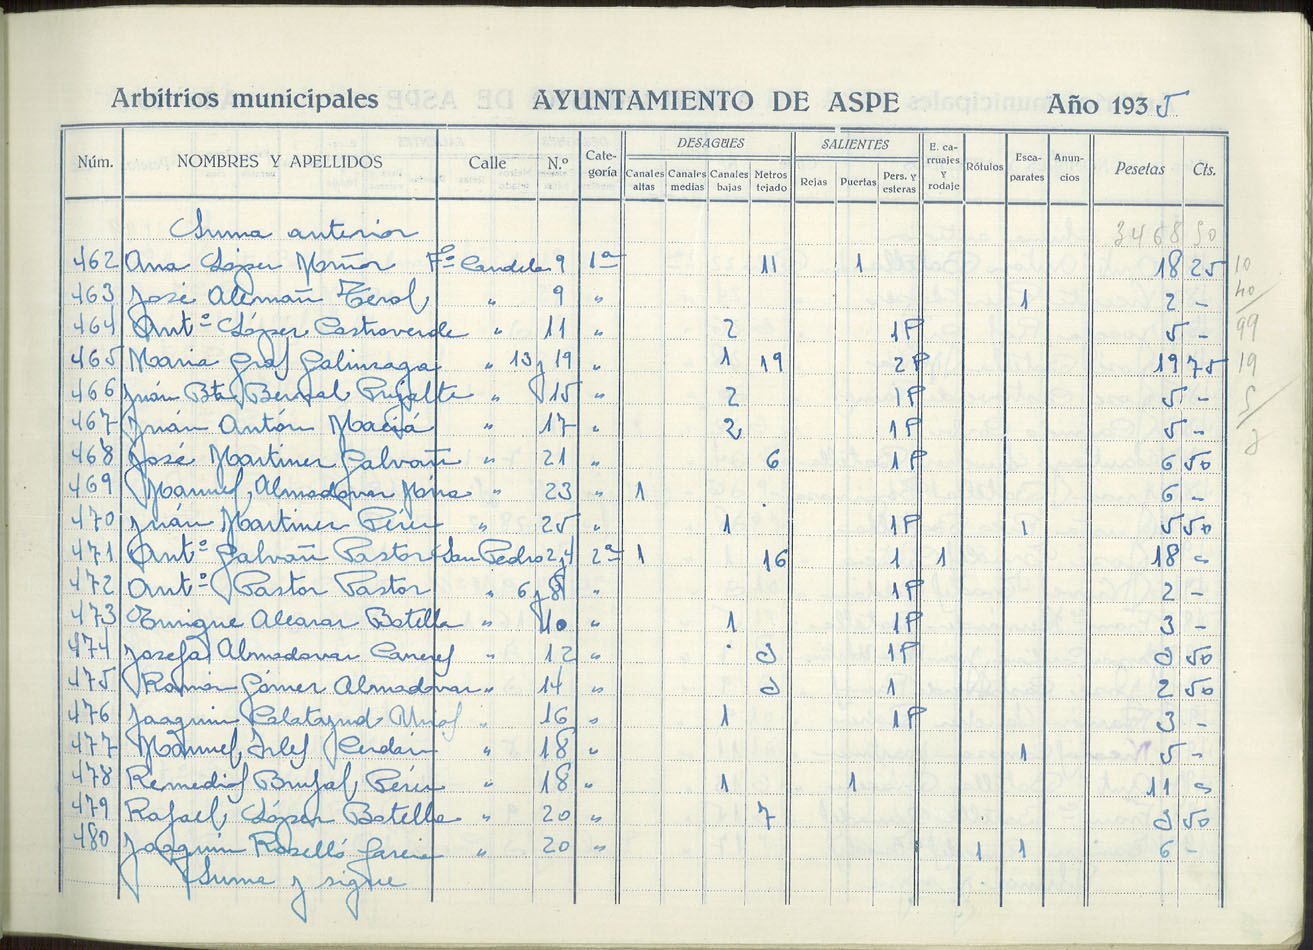 Arbitrios municipales AYUNTAMIENTO DE ASPE Año 1935
Núm. NOMBRES Y APELLIDOS Calle N.º Cate-goría DESAGÜES Canales altas Canales medias Canales bajas Metros tejado SALIENTES Rejas Puertas Pers. y esteras E. ca-rruajes y rodaje Rótulos Esca-parates Anun-cios Pesetas Cts.
Suma anterior 3468 50
462 Ana López Muñoz Fº Candela 9 1ª 11 1 18 25 10
463 José Alemañ Terol " 9 " 1 2 - 40
464 Antº López Castroverde " 11 " 2 1P 5 - 99
465 Maria Gras Galinsaga " 13 y 19 " 1 19 2P 19 75 19
466 Juán Bta Bernal Pujalte " 15 " 2 1P 5 - 5
467 Juán Antón Maciá " 17 " 2 1P 5 -
468 José Martinez Galvañ " 21 " 6 1P 6 50
469 Manuel Almodovar " 23 " 1 6 -
470 Juán Martinez Pérez " 25 " 1 1P 1 5 50
471 Antº Galvañ Pastor San Pedro 2 y 4 2ª 1 16 1 1 18 "
472 Antº Pastor Pastor " 6 y 8 " 1P 2 -
473 Enrique Alcaraz Botella " 10 " 1 1P 3 -
474 Josefa Almodovar " 12 " 3 1P 3 50
475 Ramón Gómez Almodovar " 14 " 3 1 2 50
476 Joaquin Calatayud " 16 " 1 1P 3 -
477 Manuel Irles Cerdán " 18 " 1 5 -
478 Remedios Brufal Pérez " 18 " 1 1 11 "
479 Rafael López Botella " 20 " 7 3 50
480 Joaquín Roselló Garcia " 20 " 1 1 6 -
Suma y sigue